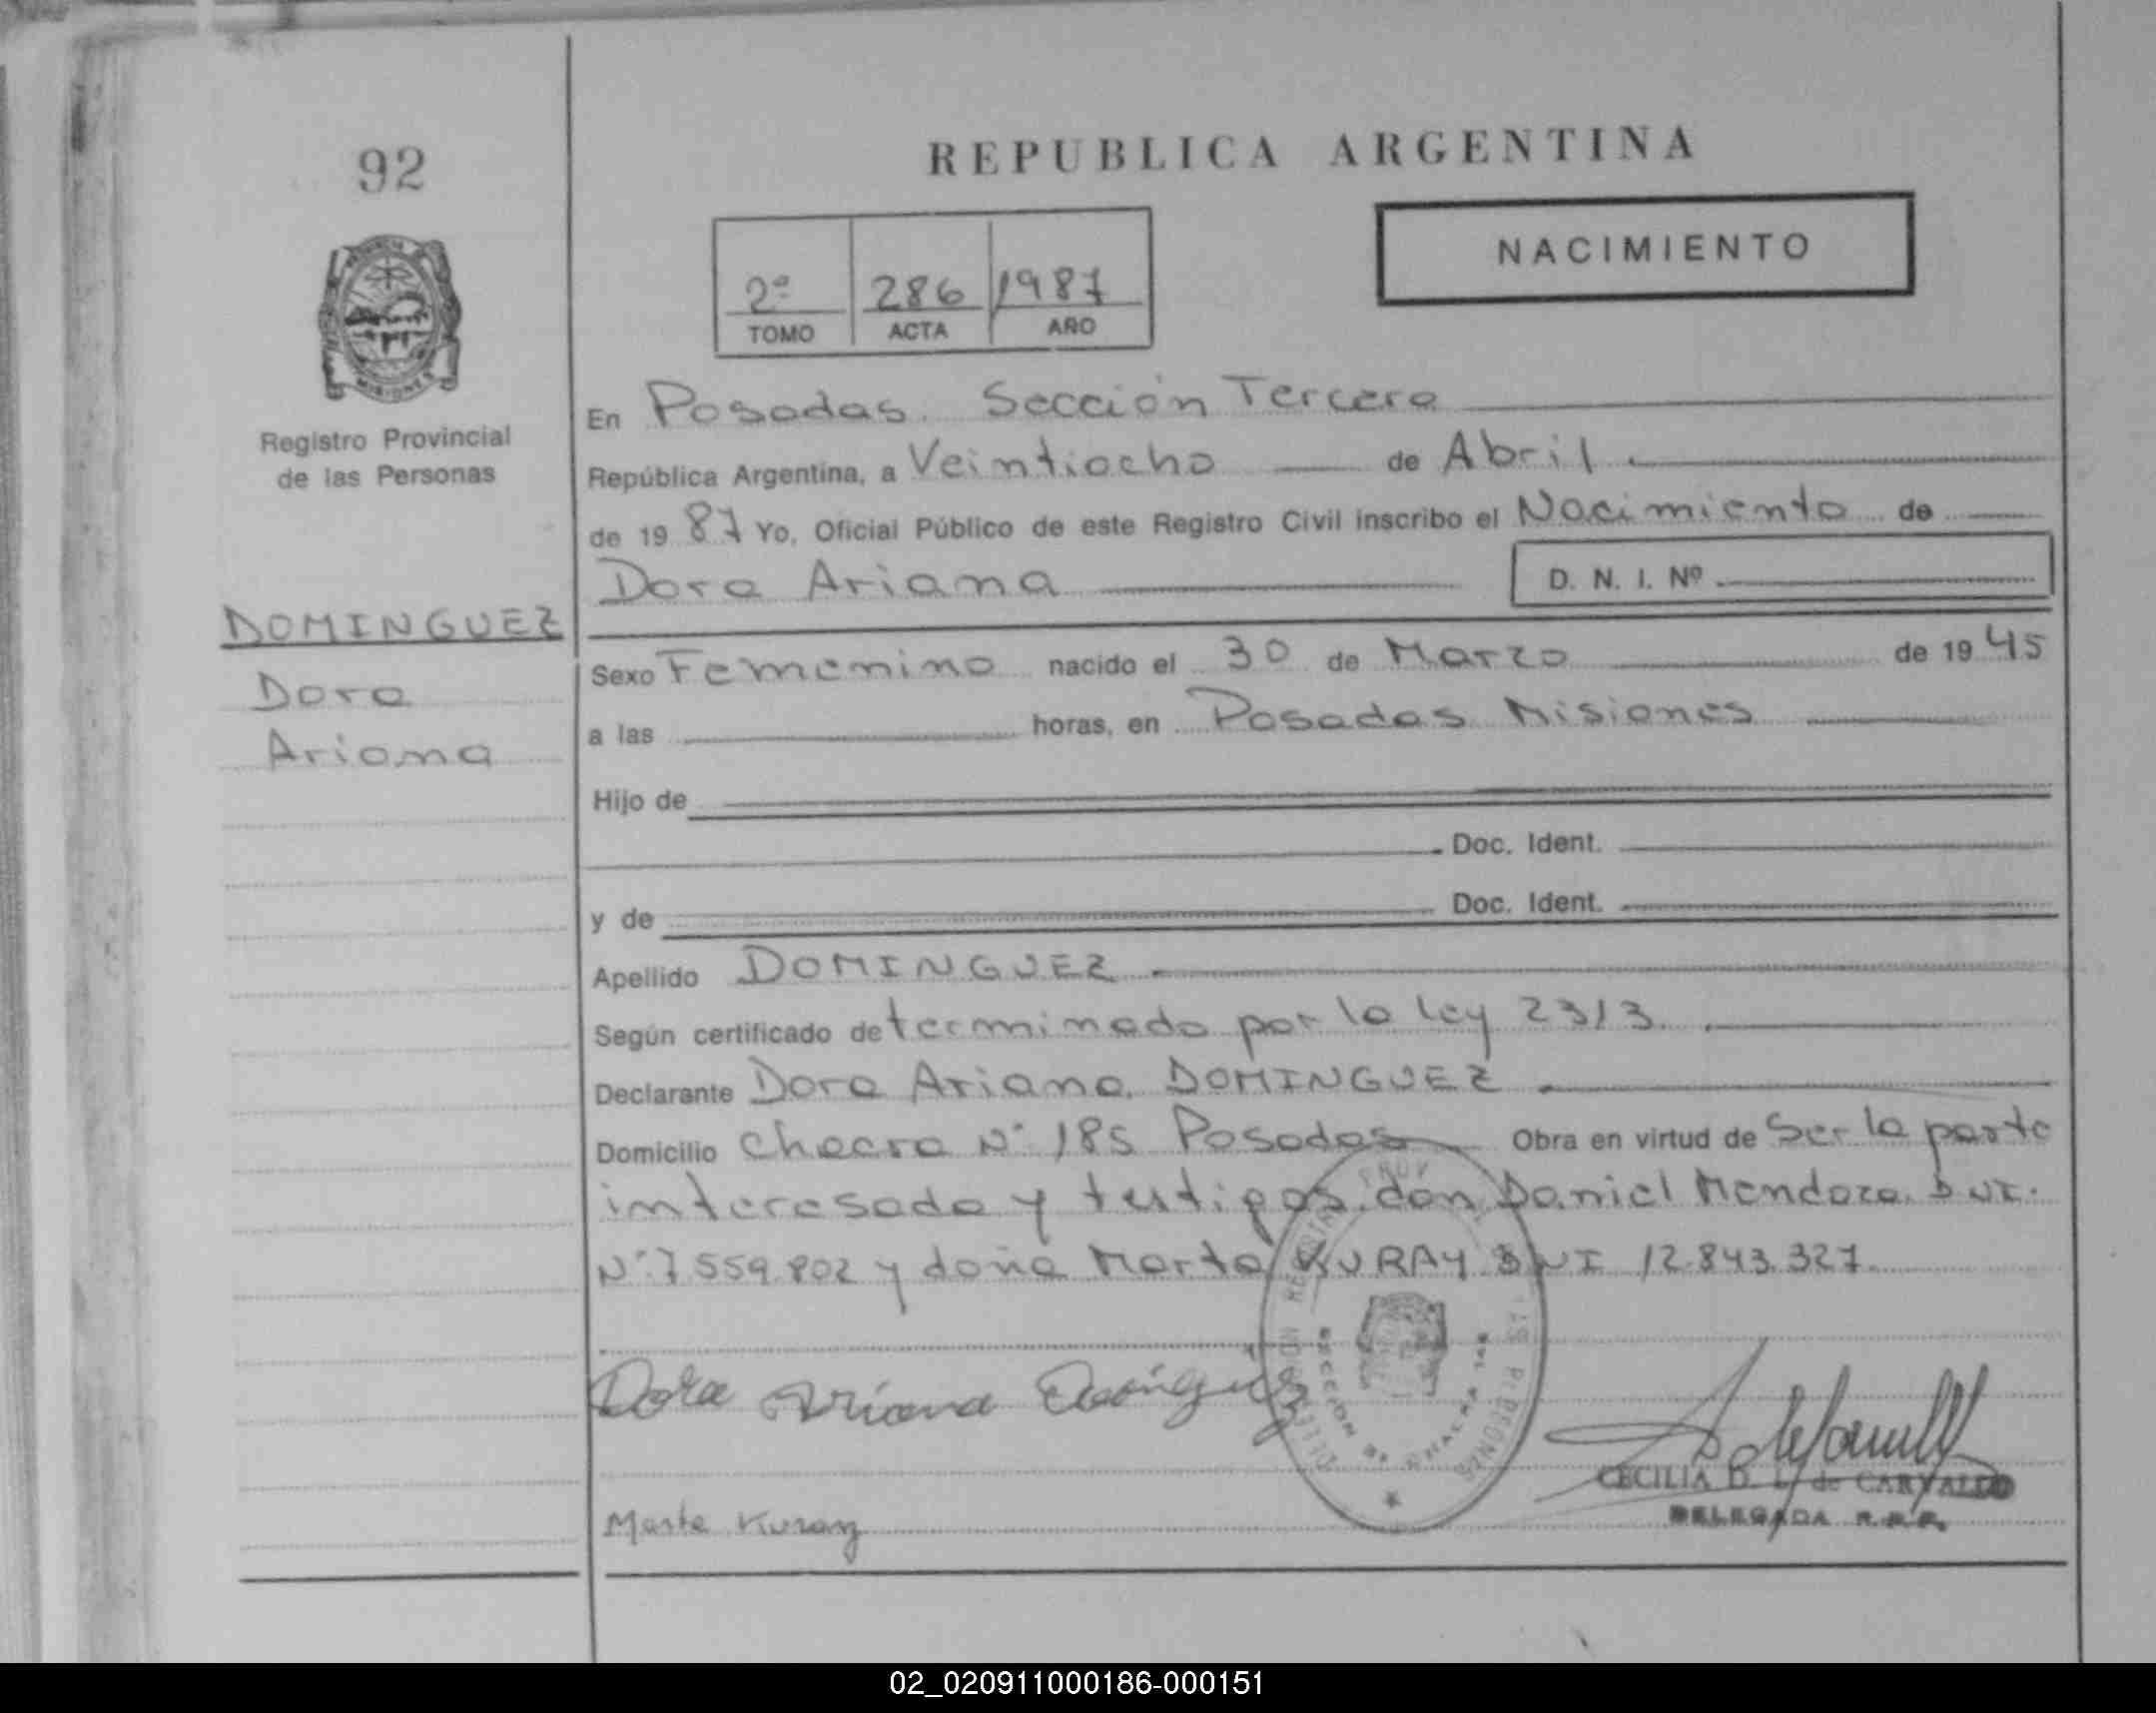 92
REPUBLICA ARGENTINA
NACIMIENTO
2º 286 1987
TOMO ACTA AÑO
MISIONES
Registro Provincial
de las Personas
En Posadas. Sección Tercera
República Argentina, a Veintiocho de Abril
de 19 87 Yo, Oficial Público de este Registro Civil inscribo el Nacimiento de
Dora Ariana D. N. I. Nº
DOMINGUEZ
Dora
Ariana
Sexo Femenino nacido el 30 de Marzo de 19 45
a las horas, en Posadas Misiones
Hijo de
Doc. Ident.
y de Doc. Ident.
Apellido DOMINGUEZ
Según certificado determinado por la ley 2313.
Declarante Dora Ariana DOMINGUEZ
Domicilio Chacra Nº 185 Posadas Obra en virtud de Ser la parte
interesada y testigos don Daniel Mendoza. DNI.
Nº 7559.802 y doña Marta KURAY DNI 12.843.327.
Dora Ariana Domínguez
CECILIA D. L. de CARVALLO
DELEGADA R.P.P.
Marta Kuray
02_020911000186-000151